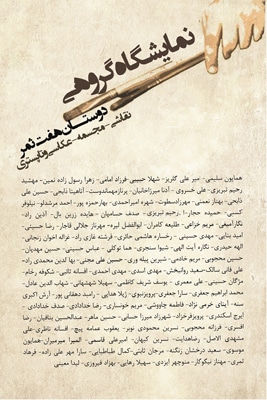 نمایشگاه گروهی
دوستان هفت ثمر
نقاشی - مجسمه - عکاسی و تاپستری
همایون سلیمی - امیر علی گلریز - شهلا حبیبی - فرزاد امامی - زهرا رسول زاده نمین - مهشید
رحیم تبریزی - علی خسروی - آدنا میرزاخانیان - پرناز مهماندوست - آناهیتا نابجی - حسین علی
ذابحی - بهناز نعمتی - مهرزاد سطوت - شهره امیراحمدی - بهار حمزه پور - احمد مرشدلو - نیلوفر
کسبی - حمیده حجار
رحیم تبریزی - صدف حسامیان - عابده زرین بال - آذین راد
نگار آصفی - مریم خزاعی - طلیعه کامران - ابوالفضل لیره - مهرناز جلالی قاجار - رضا حسینی
امید بنایی - مهدی حسینی - رخساره هاشمی حائری - فرشته غازی راد - غزاله اخوان زنجانی
الهه حیدری - نگاره آیت الهی - شیوا سنجری - هما توکلی - عباس حسینی - حسین مهدیان
حسین محجوبی - مریم خادمی - شیرین پیله وری - حسین علی مجنی - بها الدین محمدی راد
علی فانی سالک - سعید روانبخش - مهدی اسدی - مهدی احمدی - افسانه ثالبی - شکوفه رخام
مژگان حسینی - علی معمری - یوسف شریف کاظمی - سهیلا شهشهانی - شهاب الدین عادل
محمد ابراهیم جعفری - سارا جعفری - پرویز نبوی - ژیلا هدایی - رامبد دهقانی پور - آرش اکبری
سنه - آیتای خرمی نژاد - فاطمه چاوشی - مریم خونساری - رضا خدادادی - صدف خدادادی
ایرج اسکندری - پرویز فرخزاد - شهرزاد میرزا حسابی - حسین ماهر - عبدالحسین بنافیان - رضا
افسری - فرزانه محجوبی - نسرین محمودی نوبر - یعقوب عمامه پیچ - افسانه ناظری - علی
مشهدی الاصل - رضا هدایت - نسرین کیهان - امیر علی قاسمی - المیرا میرمیران - همایون
موسوی - سعید درخشان زنگنه - مرجان ثابتی - کمال طباطبایی - سارا مهر علی زاده - فرهاد
ثمری - مهناز نیکوکار - منوچهر ایزدی - سهیلا رهایی - بهزاد فیروزی - لیدا معینی